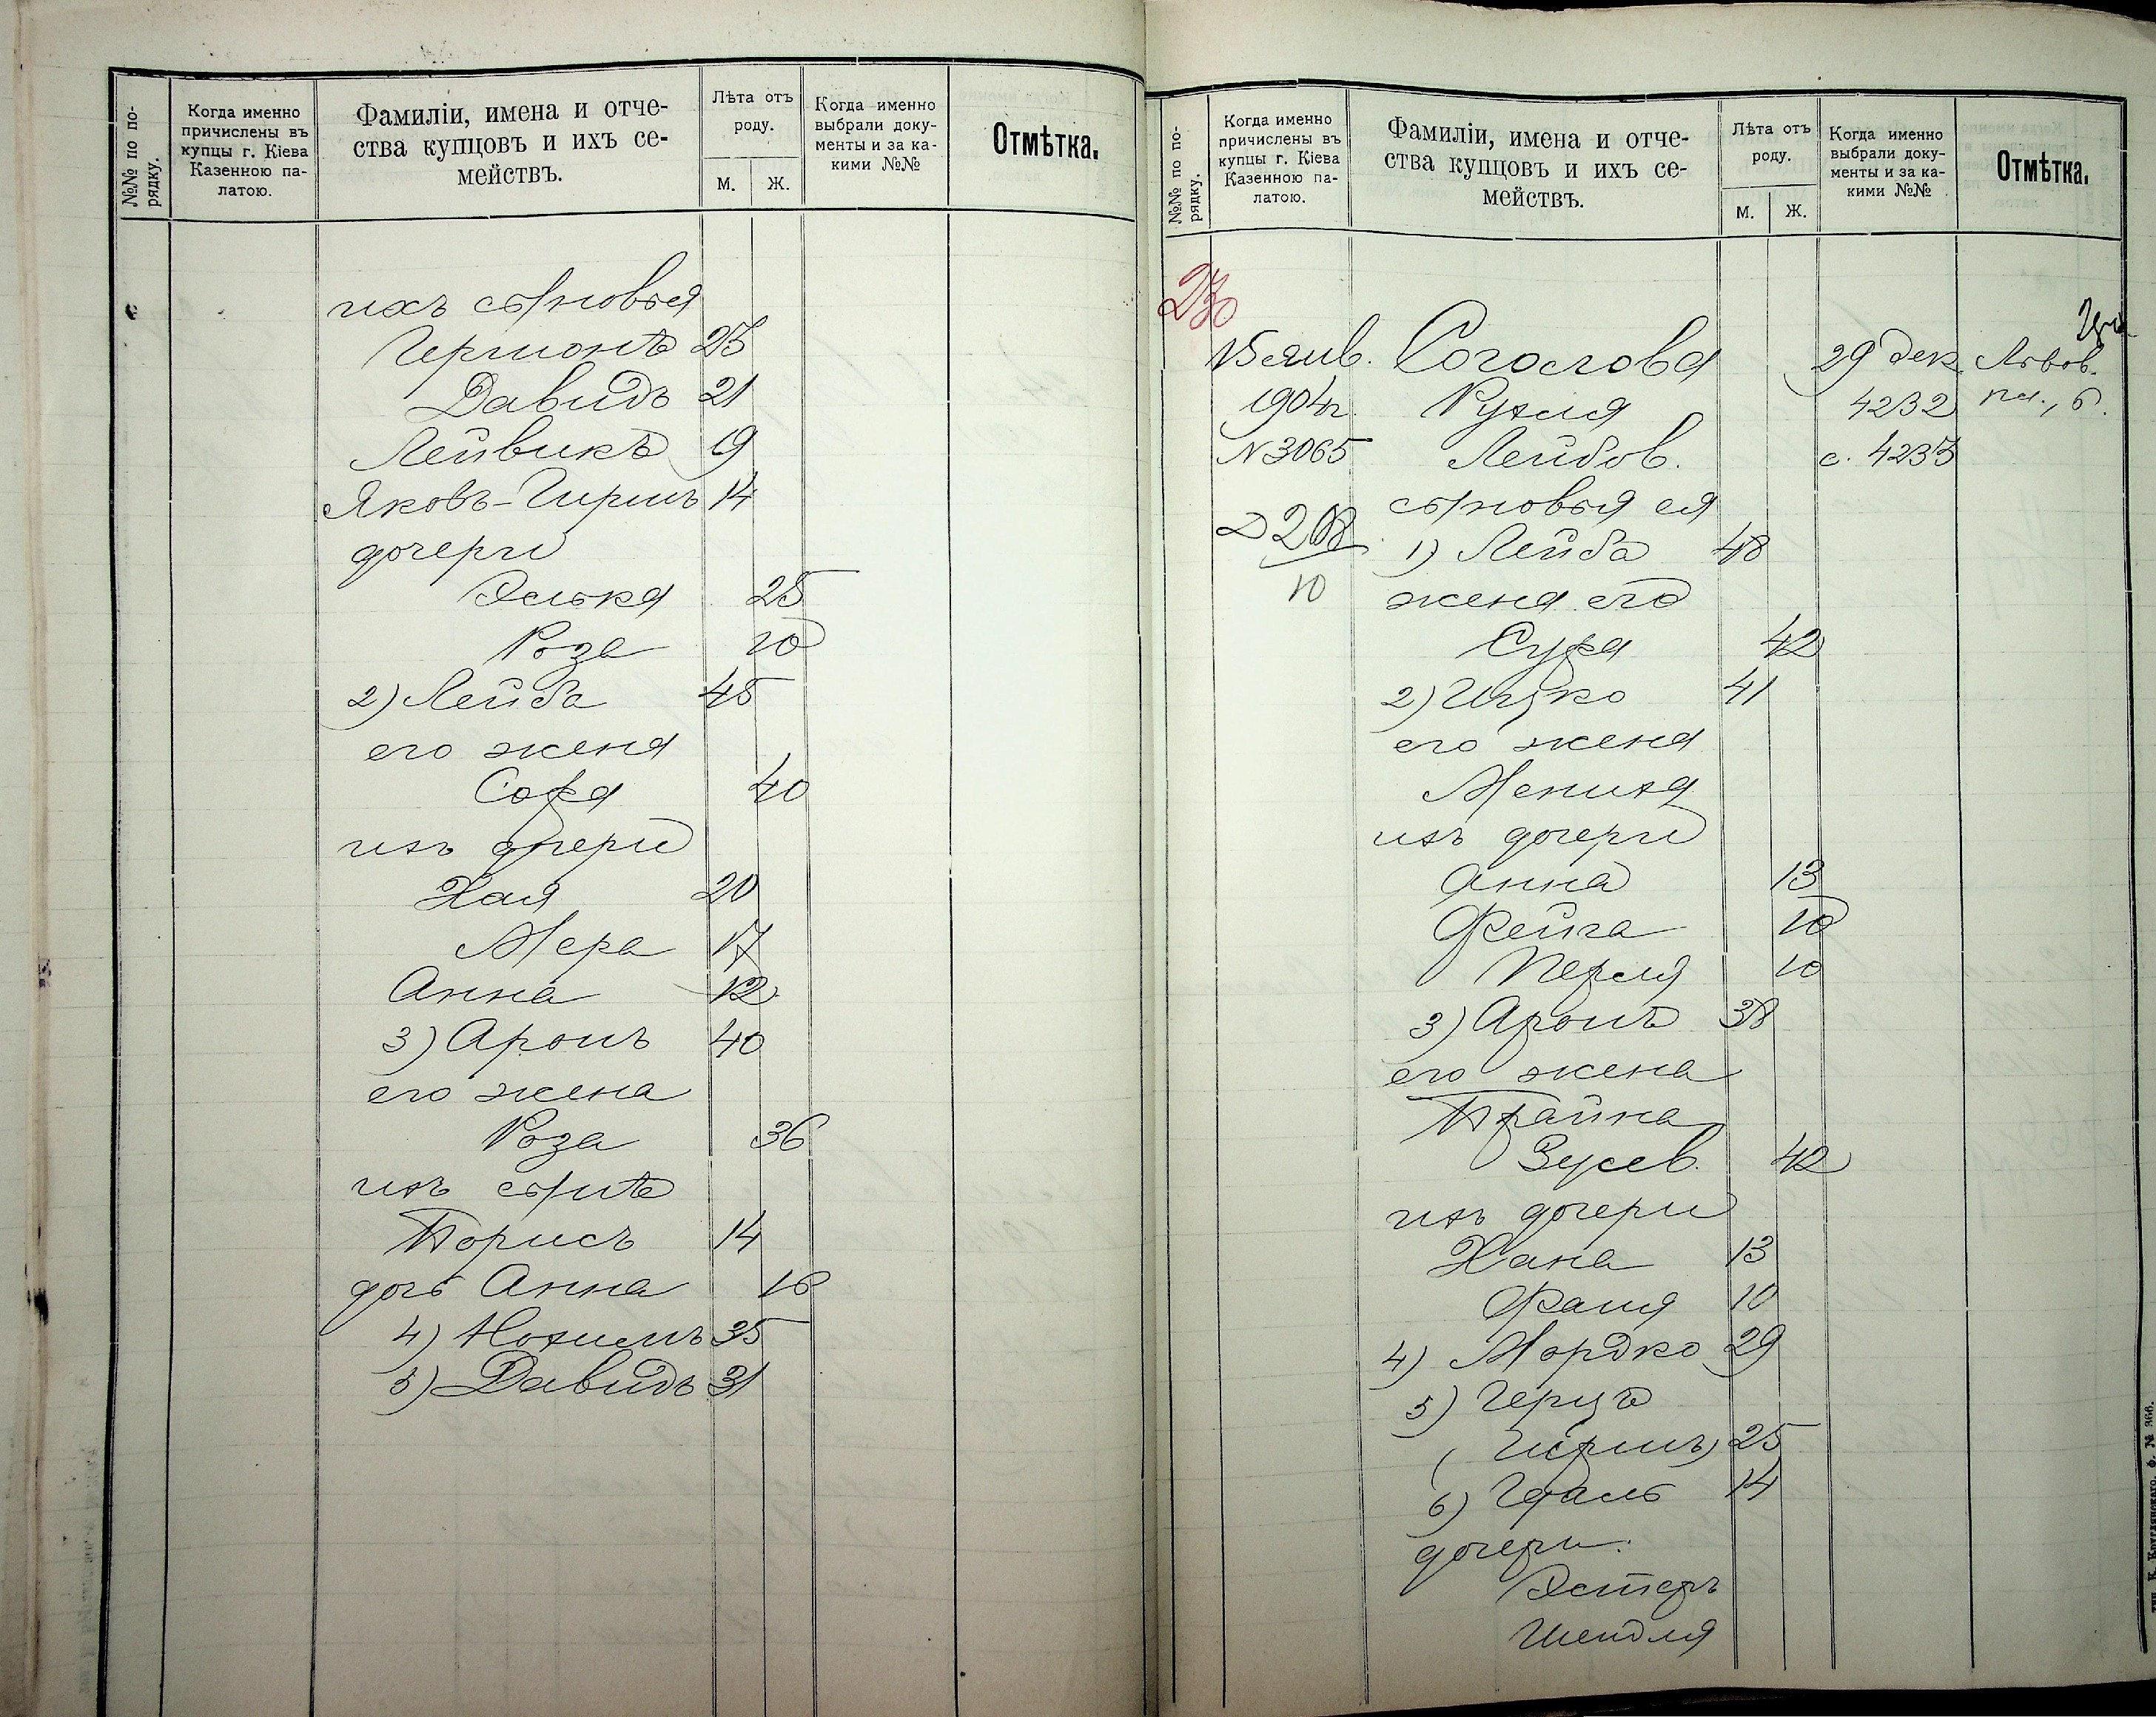 №№ по по-
рядку.
Когда именно
причислены въ
купцы г. Кіева
Казенною па-
латою.
Фамиліи, имена и отче-
ства купцовъ и ихъ се-
мействъ.
Лѣта отъ
роду.
м. ж.
Когда именно
выбрали доку-
менты и за ка-
кими №№
Отмѣтка.
ихъ сыновья
Германъ 23
Давидъ 21
Лейвикъ 19
Яковъ-Гиршъ 14
дочери
Элька 25
Роза 20
2) Лейба 45
его жена
Сора 40
ихъ дочери
Хая 20
Мера 17
Анна 12
3) Аронъ 40
его жена
Роза 36
ихъ сынъ
Борисъ 14
дочь Анна 16
4) Нохимъ 35
5) Давидъ 31
№№ по по-
рядку.
Когда именно
причислены въ
купцы г. Кіева
Казенною па-
латою.
Фамиліи, имена и отче-
ства купцовъ и ихъ се-
мействъ.
Лѣта отъ
роду.
м. ж.
Когда именно
выбрали доку-
менты и за ка-
кими №№
Отмѣтка.
230
15 янв. Соголова 29 дек. Львов.
1904 г. Рухля 4232 пл., 6.
№ 3065 Лейбов. с. 4233
сыновья ея
1) Лейба 48
10 жена его
Сура 42
2) Ицко 41
его жена
Мениха
ихъ дочери
Анна 13
Фейга 10
Перля 10
3) Аронъ 38
его жена
Брайна
Зусев. 42
ихъ дочери
Хана 13
Фаня 10
4) Мордко 29
5) Герцъ
(Гиршъ) 25
6) Удаль 14
дочери:
Эстеръ
Шендля
тип. К. Круглянскаго. ф. № 366.